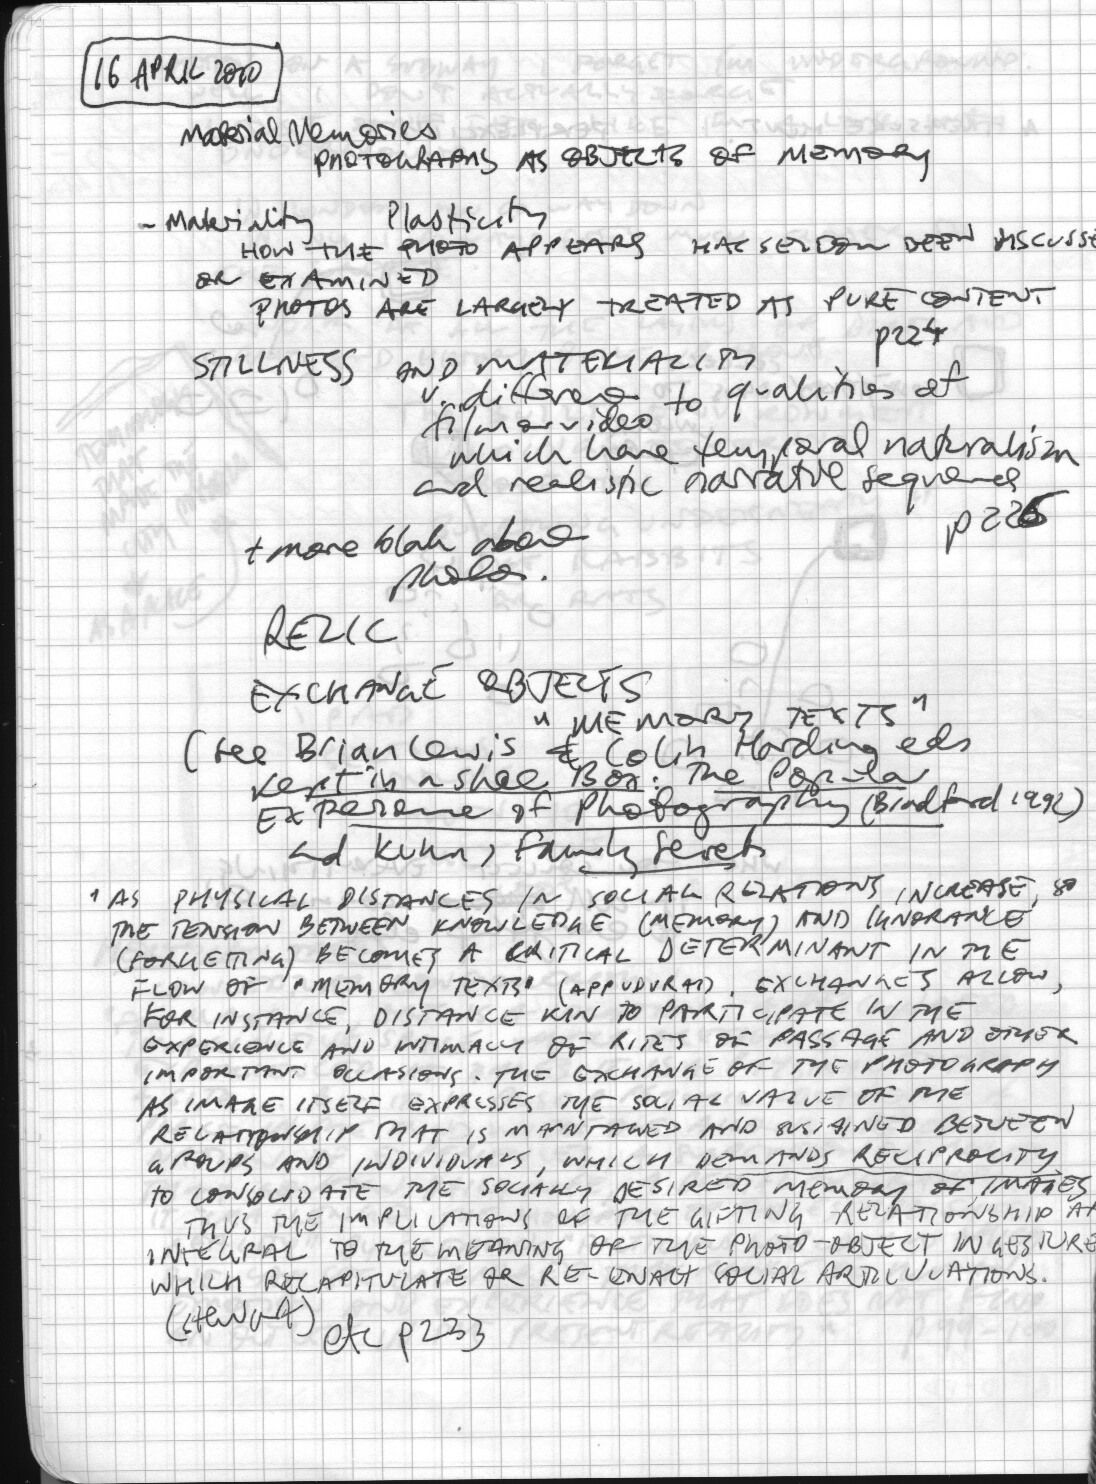 16 APRIL 2010
Material Memories
PHOTOGRAPHS AS OBJECTS OF MEMORY
- Materiality Plasticity
HOW THE PHOTO APPEARS HAS SELDOM BEEN DISCUSSE
OR EXAMINED
PHOTOS ARE LARGELY TREATED AS PURE CONTENT
p224
STILLNESS AND MATERIALITY
v. different to qualities of
film or video
which have temporal naturalism
and realistic narrative sequence
p226
+ more blah about
photos.
RELIC
EXCHANGE OBJECTS
"MEMORY TEXTS"
(see Brian Lewis & Colin Harding eds
Kept in a Shoe Box: The Popular
Experience of Photography (Bradford 1992)
and Kuhn, Family Secrets
' AS PHYSICAL DISTANCES IN SOCIAL RELATIONS INCREASE, SO
THE TENSION BETWEEN KNOWLEDGE (MEMORY) AND IGNORANCE
(FORGETTING) BECOMES A CRITICAL DETERMINANT IN THE
FLOW OF 'MEMORY TEXTS' (APPUDURAI). EXCHANGES ALLOW,
FOR INSTANCE, DISTANCE KIN TO PARTICIPATE IN THE
EXPERIENCE AND INTIMACY OF RITES OF PASSAGE AND OTHER
IMPORTANT OCCASIONS. THE EXCHANGE OF THE PHOTOGRAPH
AS IMAGE ITSELF EXPRESSES THE SOCIAL VALUE OF THE
RELATIONSHIP THAT IS MAINTAINED AND SUSTAINED BETWEEN
GROUPS AND INDIVIDUALS, WHICH DEMANDS RECIPROCITY
TO CONSOLIDATE THE SOCIALLY DESIRED MEMORY OF IMAGES
THUS THE IMPLICATIONS OF THE GIFTING RELATIONSHIP AR
INTEGRAL TO THE MEANING OF THE PHOTO-OBJECT IN GESTURE
WHICH RECAPITULATE OR RE-ENACT SOCIAL ARTICULATIONS.
etc p233